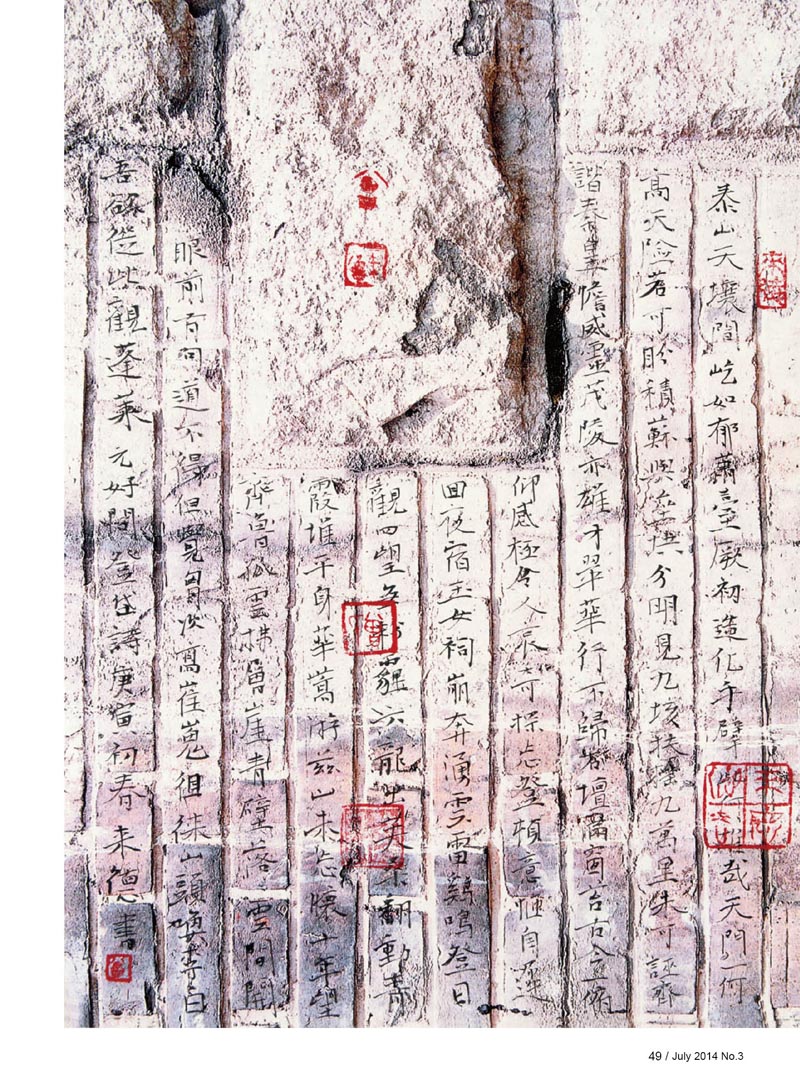 泰山天壤間屹如郁蕭臺厥初造化手擘雄哉天門一何
高天險若可階積蘇與分明見九垓扶搖九萬里未可誣齊
諧秦皇憺威靈茂陵亦雄才翠華行不歸壇滿古今一俯
仰感極令人哀奇探忘登頓意愜自遲
回夜宿玉女祠崩奔湧雲雷鷄鳴登日
觀四望氛霾六龍出扶桑翻動青
霞堆平身華嵩游茲山未忘懷十年望
齊魯孤雲拂層崖青壁落雲間開
眼前有句道不得但覺胸次高崔嵬徂徠山頭喚李白
吾欲從此觀蓬萊 元好問登岱詩庚寅初春未德書
49 / July 2014 No.3